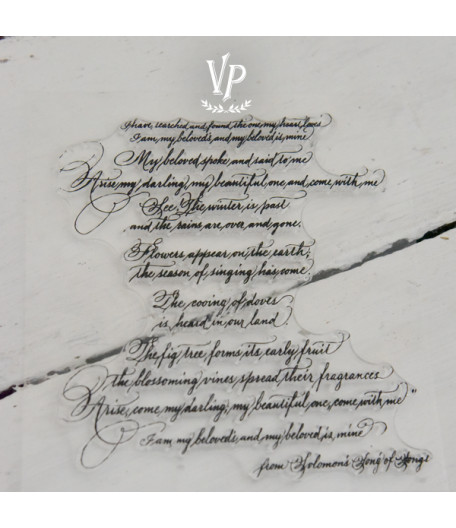 VP
I have searched and found the one my heart loves
I am my beloved's and my beloved is mine
My beloved spoke and said to me
Arise, my darling, my beautiful one, and come with me
See, The winter is past
and the rains are over and gone.
Flowers appear on the earth;
the season of singing has come,
The cooing of doves
is heard in our land.
The fig tree forms its early fruit
the blossoming vines spread their fragrances
Arise, come my darling, my beautiful one, come with me"
I am my beloved's and my beloved is mine
from Solomon's Song of Songs